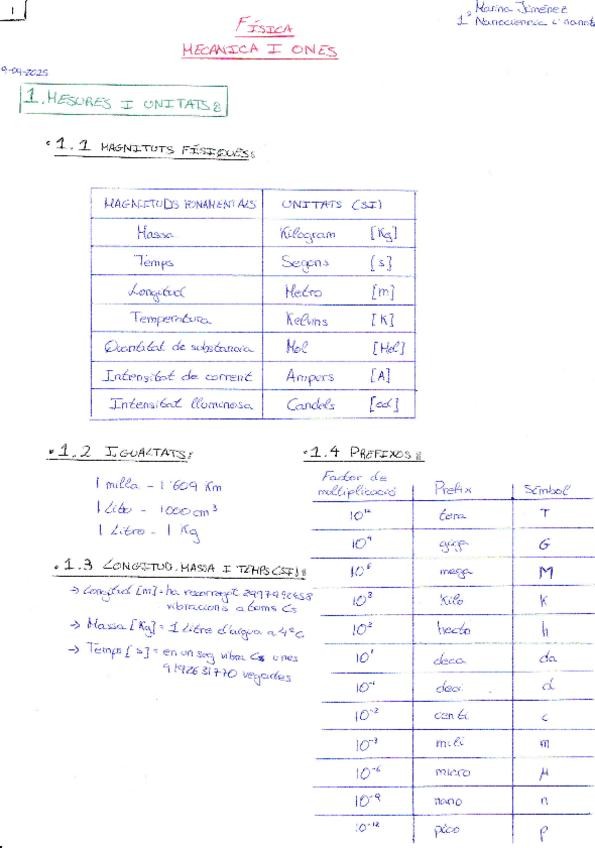 1
Marina Jiménez
1º Nanociència i nanot
FÍSICA
MECANICA I ONES
9-09-2025
1. MESURES I UNITATS:
• 1.1 MAGNITUTS FÍSIQUES:
MAGNITUDS FONAMENTALS UNITATS (SI)
Massa Kilogram [Kg]
Temps Segons [s]
Longitud Metro [m]
Temperatura Kelvins [K]
Quantitat de substancia Mol [Mol]
Intensitat de corrent Ampers [A]
Intensitat lluminosa Candels [cd]
• 1.2 IGUALTATS:
1 milla - 1'609 Km
1 Litro - 1000 cm³
1 Litro - 1 Kg
• 1.3 LONGITUD, MASSA I TEMPS (SI):
→ Longitud [m] = ha recorregut 299792458
vibracions atoms Cs
→ Massa [Kg] = 1 Litre d'aigua a 4°C
→ Temps [s] = en un seg vibra Cs unes
9192631770 vegades
• 1.4 PREFIXOS:
Factor de
multiplicació Prefix Símbol
10¹² tera T
10⁹ giga G
10⁶ mega M
10³ Kilo K
10² hecto h
10¹ deca da
10⁻¹ deci d
10⁻² centi c
10⁻³ mili m
10⁻⁶ micro μ
10⁻⁹ nano n
10⁻¹² pico p